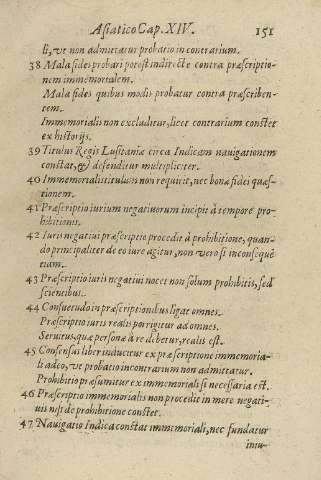 Asiatico Cap. XIV. 151
li, vt non admittatur probatio in contrarium.
38 Mala fides probari potest indirecte contra præscriptio-
nem immemorialem.
Mala fides quibus modis probatur contra præscriben-
tem.
Immemorialis non excluditur, licet contrarium constet
ex historijs.
39 Titulus Regis Lusitaniæ circa Indicam nauigationem
constat, & defenditur multipliciter.
40 Immemorialis titulum non requirit, nec bonæ fidei quæs-
tionem.
41 Præscriptio iurium negatiuorum incipit à tempore pro-
hibitionis.
42 Iuris negatiui præscriptio procedit à prohibitione, quan-
do principaliter de eo iure agitur, non vero si inconseque
tiam.
43 Præscriptio iuris negatiui nocet non solum prohibitis, sed
scientibus.
44 Consuetudo in præscriptionibus ligat omnes.
Præscriptio iuris realis porrigitur ad omnes.
Seruitus, quæ personæ à re debetur, realis est.
45 Consensus liber inducitur ex præscriptione immemoria-
li adeo, vt probatio in contrarium non admittatur.
Prohibitio præsumitur ex immemoriali si necessaria est.
46 Præscriptio immemorialis non procedit in mere negati-
uis nisi de prohibitione constet.
47 Nauigatio Indica constat immemoriali, nec fundatur
inui-